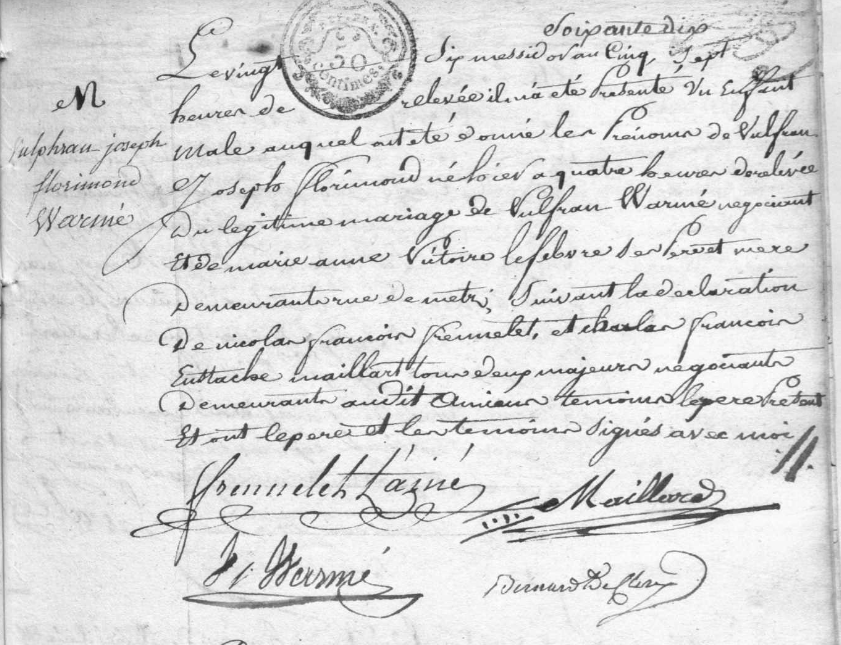 Soixante dix
Le vingt Six messidor au Cinq, Sept
50
Centimes.
heures de relevée il m'a été Présenté Un Enfant
N
Male auquel ont été donné les Prénoms de Vulfran
Vulphran joseph
Joseph florimond né hier a quatre heures de relevée
florimond
Du legitime mariage de Vulfran Warmé negociant
Warmé
Et de marie anne Victoire lefebvre Ses Pere et mere
Demeurants rue de metz, Suivant la declaration
De nicolas francois frennelet, et charles francois
Eustache maillart tous deux majeurs négociants
Demeurants audit Amiens temoins le pere Présent
Et ont le pere et les temoins Signés avec moi
frennelet L'ainé
Maillard
V. Warmé
Bernard